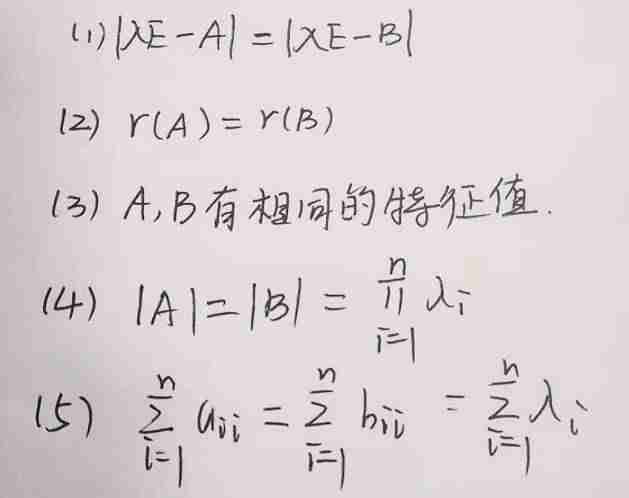 (1) |λE-A| = |λE-B|
(2) r(A) = r(B)
(3) A,B有相同的特征值.
(4) |A| = |B| = ∏_{i=1}^{n} λi
(5) ∑_{i=1}^{n} aii = ∑_{i=1}^{n} bii = ∑_{i=1}^{n} λi